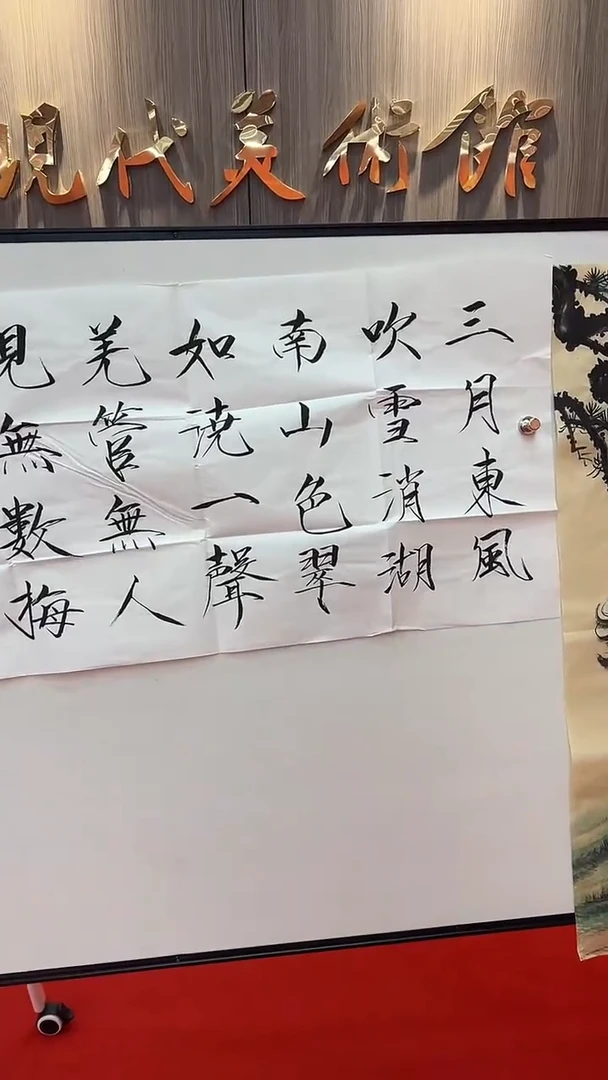 現代美術館
三月東風
吹雪消湖
南山色翠
如浇一聲
羌管無人
見無數梅